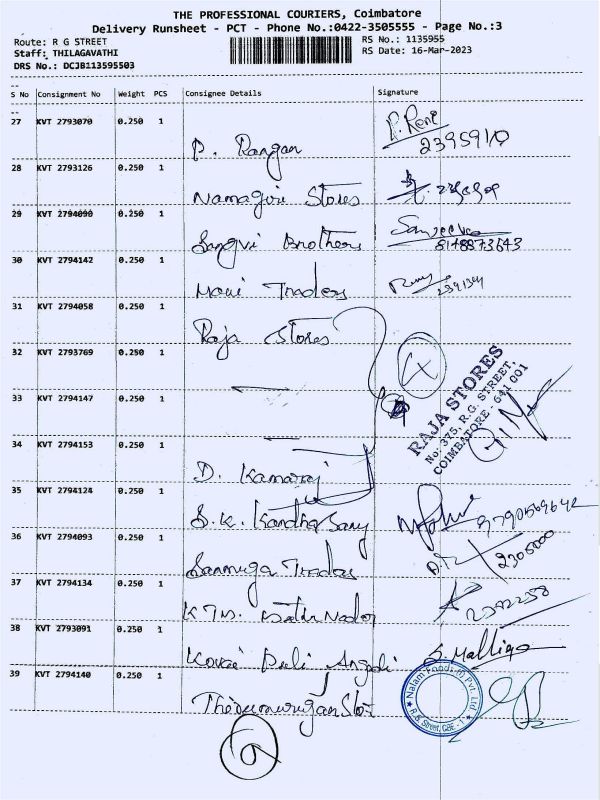 THE PROFESSIONAL COURIERS, Coimbatore
Delivery Runsheet - PCT - Phone No.:0422-3505555 - Page No.:3
Route: R G STREET
RS No.: 1135955
Staff: THILAGAVATHI
RS Date: 16-Mar-2023
DRS No.: DCJB113595503
S No Consignment No Weight PCS Consignee Details Signature
27 KVT 2793070 0.250 1 P. Rangan P. Reni
28 KVT 2793126 0.250 1 Namagiri Stores
29 KVT 2794090 0.250 1 Sangvi Brothers Sanjeevkr
8148873643
30 KVT 2794142 0.250 1 Traders
31 KVT 2794058 0.250 1 Raja Stores
32 KVT 2793769 0.250 1
RAJA STORES
No: 375, R.G. STREET,
COIMBATORE - 641 001
33 KVT 2794147 0.250 1
34 KVT 2794153 0.250 1 D. Kamaraj
35 KVT 2794124 0.250 1 S.K. Kandhasamy
36 KVT 2794093 0.250 1 Sanmuga Traders
37 KVT 2794134 0.250 1 K.T.M. Nadar
38 KVT 2793091 0.250 1 Kovai Puli Angadi S. Malliga
39 KVT 2794140 0.250 1 Thirumurugan Stor
Nalam Foods (P) Pvt. Ltd
R.G. Street, CBE - 1